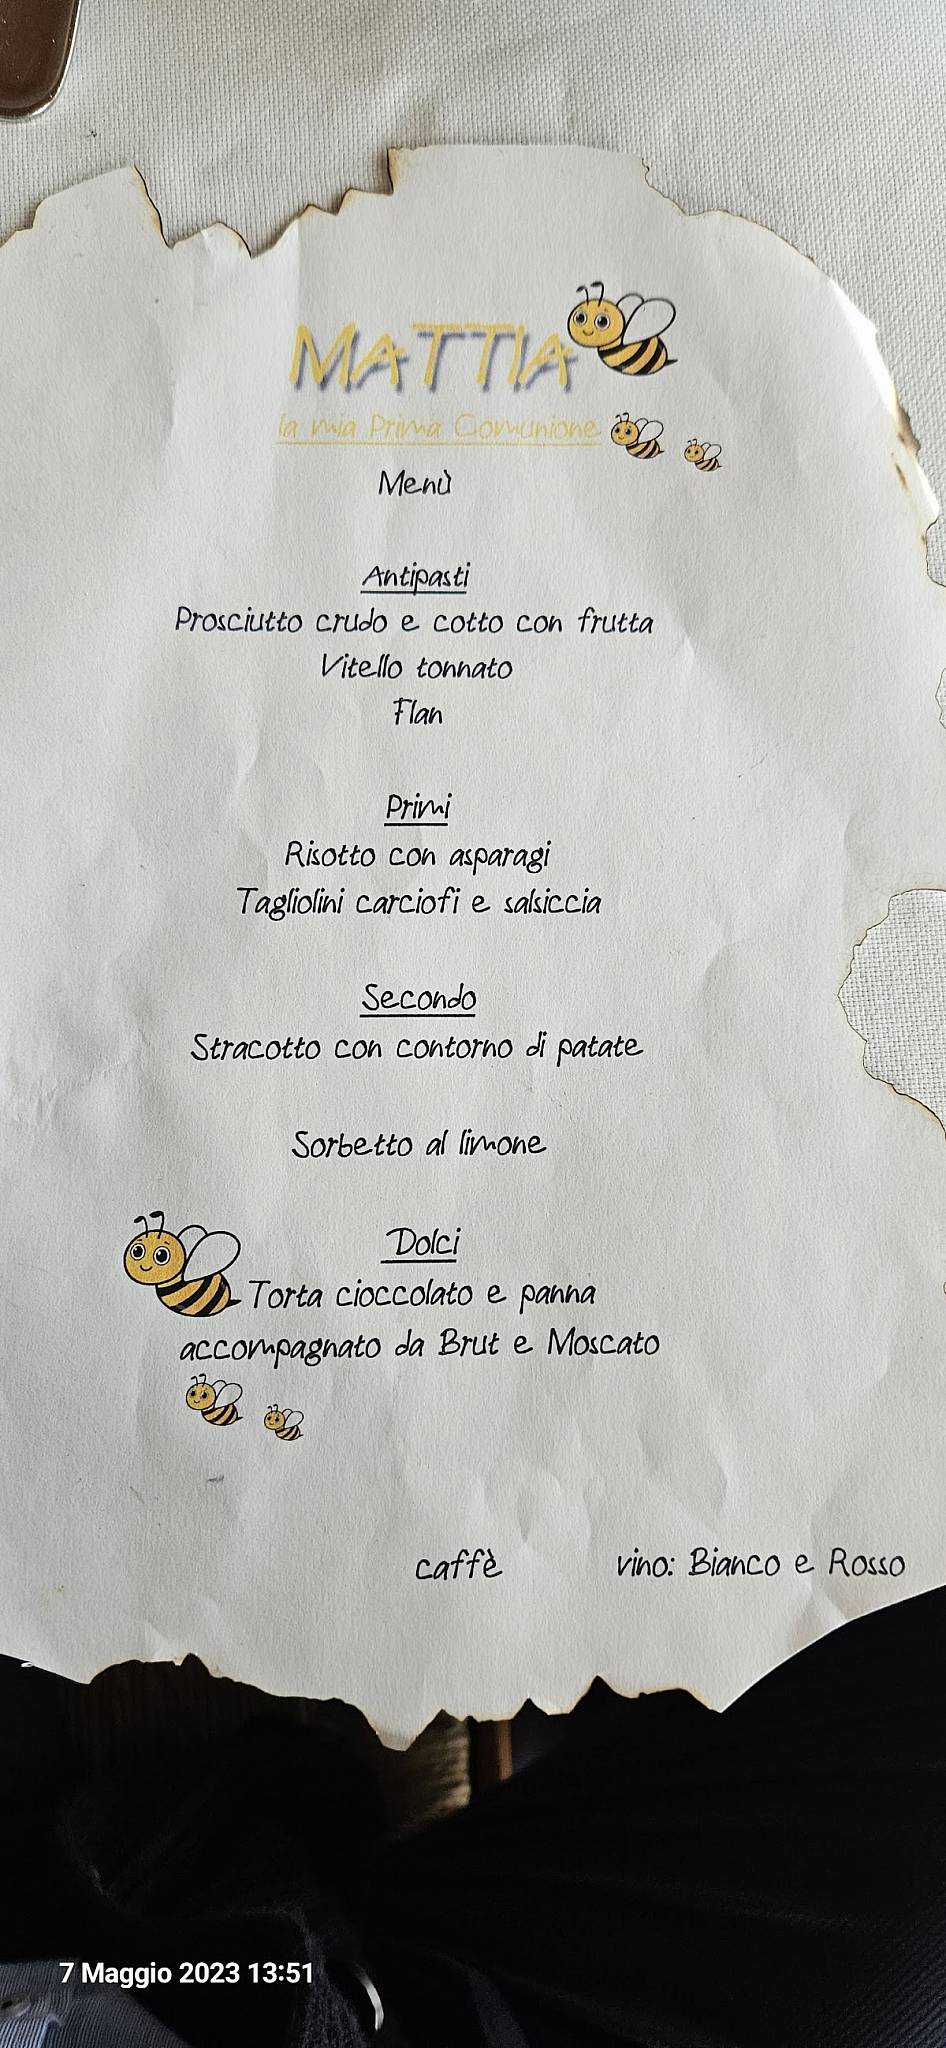 MATTIA
la mia Prima Comunione
Menù
Antipasti
Prosciutto crudo e cotto con frutta
Vitello tonnato
Flan
Primi
Risotto con asparagi
Tagliolini carciofi e salsiccia
Secondo
Stracotto con contorno di patate
Sorbetto al limone
Dolci
Torta cioccolato e panna
accompagnato da Brut e Moscato
caffè vino: Bianco e Rosso
7 Maggio 2023 13:51